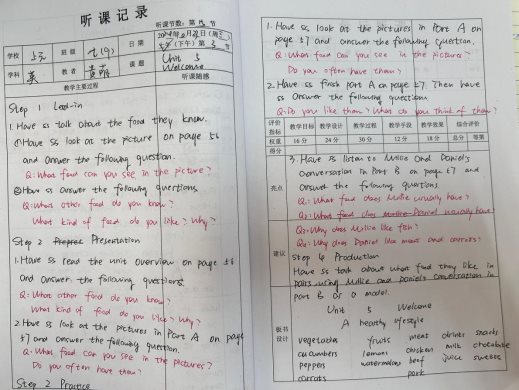 听课记录
听课节数：第 节
学校
班级 七(9)
日期
(下午)第 节
学科 英
教者
课题 Unit 5
Welcome
教学主要过程
听课随感
Step 1 Lead-in
1. Have ss talk about the food they know.
①Have ss look at the picture on page 56
and answer the following question.
Q: What food can you see in the picture?
②Have ss answer the following questions
Q: What other food do you know?
What kind of food do you like? Why?
Step 2 Presentation
1. Have ss read the unit overview on page 56
and answer the following questions.
Q: What other food do you know?
What kind of food do you like? Why?
2. Have ss look at the pictures in Part A on page
57 and answer the following question.
Q: What food can you see in the pictures?
Do you often have them?
Step 2 Practice
1. Have ss look at the pictures in Part A on
page 57 and answer the following question.
Q: What food can you see in the pictures?
Do you often have them?
2. Have ss finish part A on page 57. Then have
ss answer the following question.
Q: Do you like them? What do you think of them?
评价指标 教学目标 教学设计 教学过程 教学手段 教学效果 综合评价
权重 16分 24分 30分 12分 18分 总分 等第
得分
3. Have ss listen to Millie and Daniel's
conversation in Part B on page 57 and
answer the following questions.
亮点
Q1: What food does Millie usually have?
Q2: What food does Daniel usually have
Q3: Why does Millie like fish?
Q4: Why does Daniel like meat and carrots?
建议
Step 4 Production
Have ss talk about what food they like in
pairs using Millie and Daniel's conversation in
part B as a model.
板书设计
Unit 5 Welcome
A healthy lifestyle
vegetables fruits meat drinks snacks
cucumbers lemons chicken milk chocolate
peppers watermelons beef juice sweets
carrots pork